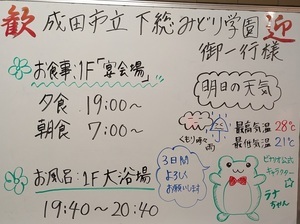 歓 成田市立 下総みどり学園 迎
御一行様
お食事:1F「宴会場」
夕食 19:00~
朝食 7:00~
お風呂:1F大浴場
19:40~20:40
明日の天気
くもり時々雨
最高気温 28℃
最低気温 21℃
3日間
よろしく
お願いします
ピカリ公式
キャラクター
ラナ
ちゃん